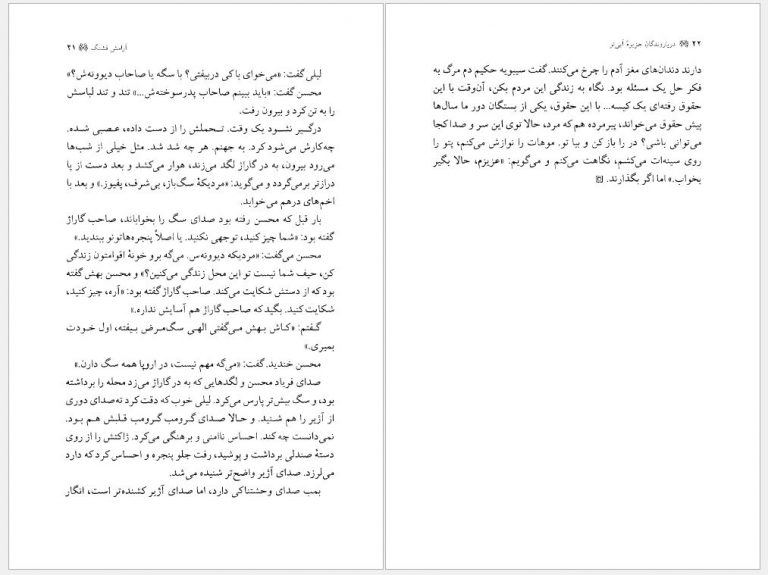 آرامش قشنگ ۲۱
لیلی گفت: «می‌خوای با کی دربیفتی؟ با سگه یا صاحاب دیوونه‌ش؟»
محسن گفت: «باید ببینم صاحاب پدرسوخته‌ش...» تند و تند لباسش
را به تن کرد و بیرون رفت.
درگیر نشود یک وقت. تحملش را از دست داده، عصبی شده.
چه‌کارش می‌شود کرد. به جهنم. هر چه شد شد. مثل خیلی از شب‌ها
می‌رود بیرون، به در گاراژ لگد می‌زند، هوار می‌کشد و بعد دست از پا
درازتر برمی‌گردد و می‌گوید: «مردیکهٔ سگ‌باز، بی‌شرف، پفیوز.» و بعد با
اخم‌های درهم می‌خوابد.
بار قبل که محسن رفته بود صدای سگ را بخواباند، صاحب گاراژ
گفته بود: «شما چیز کنید، توجهی نکنید. یا اصلاً پنجره‌هاتونو ببندید.»
محسن می‌گفت: «مردیکه دیوونه‌س. می‌گه برو خونهٔ اقوامتون زندگی
کن، حیف شما نیست تو این محل زندگی می‌کنین؟» و محسن بهش گفته
بود که از دستش شکایت می‌کند. صاحب گاراژ گفته بود: «آره، چیز کنید،
شکایت کنید. بگید که صاحب گاراژ هم آسایش نداره.»
گفتم: «کاش بهش می‌گفتی الهی سگ‌مرض بیفته، اول خودت
بمیری.»
محسن خندید. گفت: «می‌گه مهم نیست، در اروپا همه سگ دارن.»
صدای فریاد محسن و لگدهایی که به در گاراژ می‌زد محله را برداشته
بود، و سگ بیش‌تر پارس می‌کرد. لیلی خوب که دقت کرد ته‌صدای دوری
از آژیر را هم شنید. و حالا صدای گرومب گرومب قلبش هم بود.
نمی‌دانست چه کند. احساس ناامنی و برهنگی می‌کرد. ژاکتش را از روی
دستهٔ صندلی برداشت و پوشید، رفت جلو پنجره و احساس کرد که دارد
می‌لرزد. صدای آژیر واضح‌تر شنیده می‌شد.
بمب صدای وحشتناکی دارد، اما صدای آژیر کشنده‌تر است، انگار
۲۲ دریاروندگان جزیرهٔ آبی‌تر
دارند دندان‌های مغز آدم را چرخ می‌کنند. گفت سیبویه حکیم دم مرگ به
فکر حل یک مسئله بود. نگاه به زندگی این مردم بکن، آن‌وقت با این
حقوق رفته‌ای یک کیسه... با این حقوق، یکی از بستگان دور ما سال‌ها
پیش حقوق می‌خواند، پیرمرده هم که مرد، حالا توی این سر و صدا کجا
می‌توانی باشی؟ در را باز کن و بیا تو. موهات را نوازش می‌کنم، پتو را
روی سینه‌ات می‌کشم، نگاهت می‌کنم و می‌گویم: «عزیزم، حالا بگیر
بخواب.» اما اگر بگذارند.